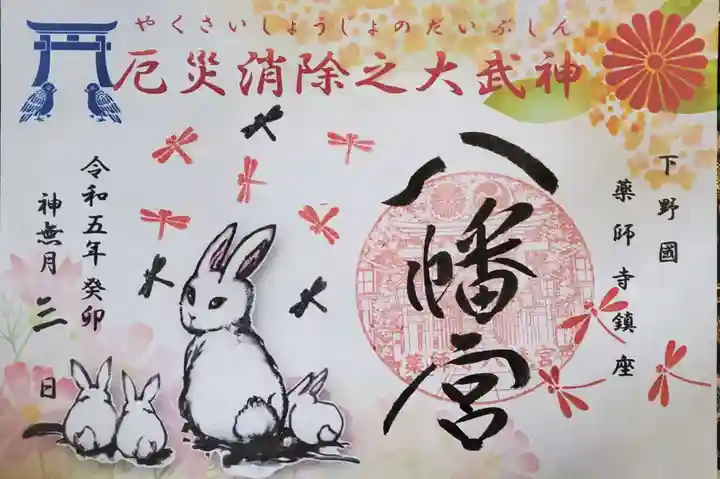 やくさいしょうじょのだいぶしん
厄災消除之大武神
下野國
薬師寺鎮座
八幡宮
令和五年癸卯
神無月三日